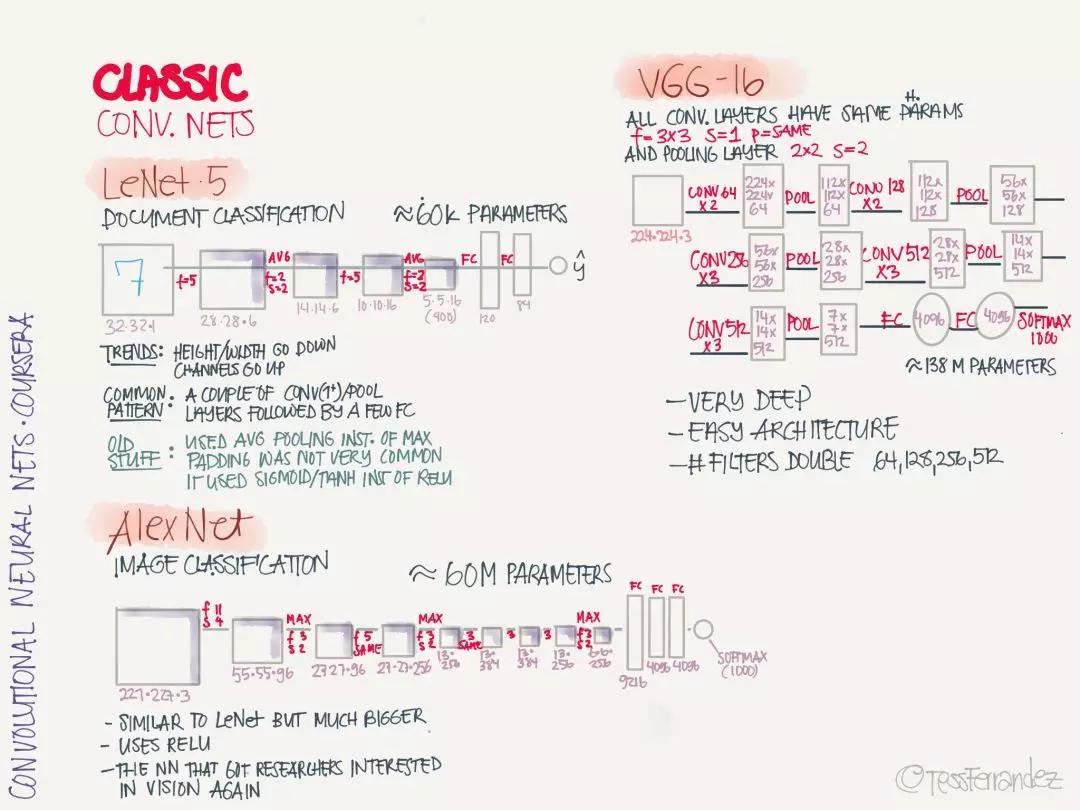 CLASSIC
CONV. NETS
LeNet·5
DOCUMENT CLASSIFICATION ≈60K PARAMETERS
7
32·32·1
f=5
28·28·6
AVG
f=2
S=2
14·14·6
f=5
10·10·16
AVG
f=2
S=2
5·5·16
(400)
FC
120
FC
84
ŷ
TRENDS: HEIGHT/WIDTH GO DOWN
CHANNELS GO UP
COMMON PATTERN: A COUPLE OF CONV(1+)/POOL
LAYERS FOLLOWED BY A FEW FC
OLD STUFF: USED AVG POOLING INST. OF MAX
PADDING WAS NOT VERY COMMON
IT USED SIGMOID/TANH INST OF RELU
AlexNet
IMAGE CLASSIFICATION ≈ 60M PARAMETERS
227·227·3
f 11
S 4
55·55·96
MAX
f 3
S 2
27·27·96
f 5
SAME
27·27·256
MAX
f 3
S 2
13·
256
3
SAME
13·
384
3
13·
384
3
13·
256
MAX
f 3
S 2
6·6·
256
9216
FC
4096
FC
4096
FC
SOFTMAX
(1000)
- SIMILAR TO LeNet BUT MUCH BIGGER
- USES RELU
- THE NN THAT GOT RESEARCHERS INTERESTED
IN VISION AGAIN
VGG-16
#.
ALL CONV. LAYERS HAVE SAME PARAMS
f=3X3 S=1 P=SAME
AND POOLING LAYER 2X2 S=2
224·224·3
CONV 64
X2
224x
224x
64
POOL
112x
112x
64
CONV 128
X2
112x
112x
128
POOL
56x
56x
128
CONV 256
X3
56x
56x
256
POOL
28x
28x
256
CONV 512
X3
28x
28x
512
POOL
14x
14x
512
CONV 512
X3
14x
14x
512
POOL
7x
7x
512
FC
4096
FC
4096
SOFTMAX
1000
≈138 M PARAMETERS
- VERY DEEP
- EASY ARCHITECTURE
- # FILTERS DOUBLE 64,128,256,512
CONVOLUTIONAL NEURAL NETS · COURSERA
©TessFerrandez